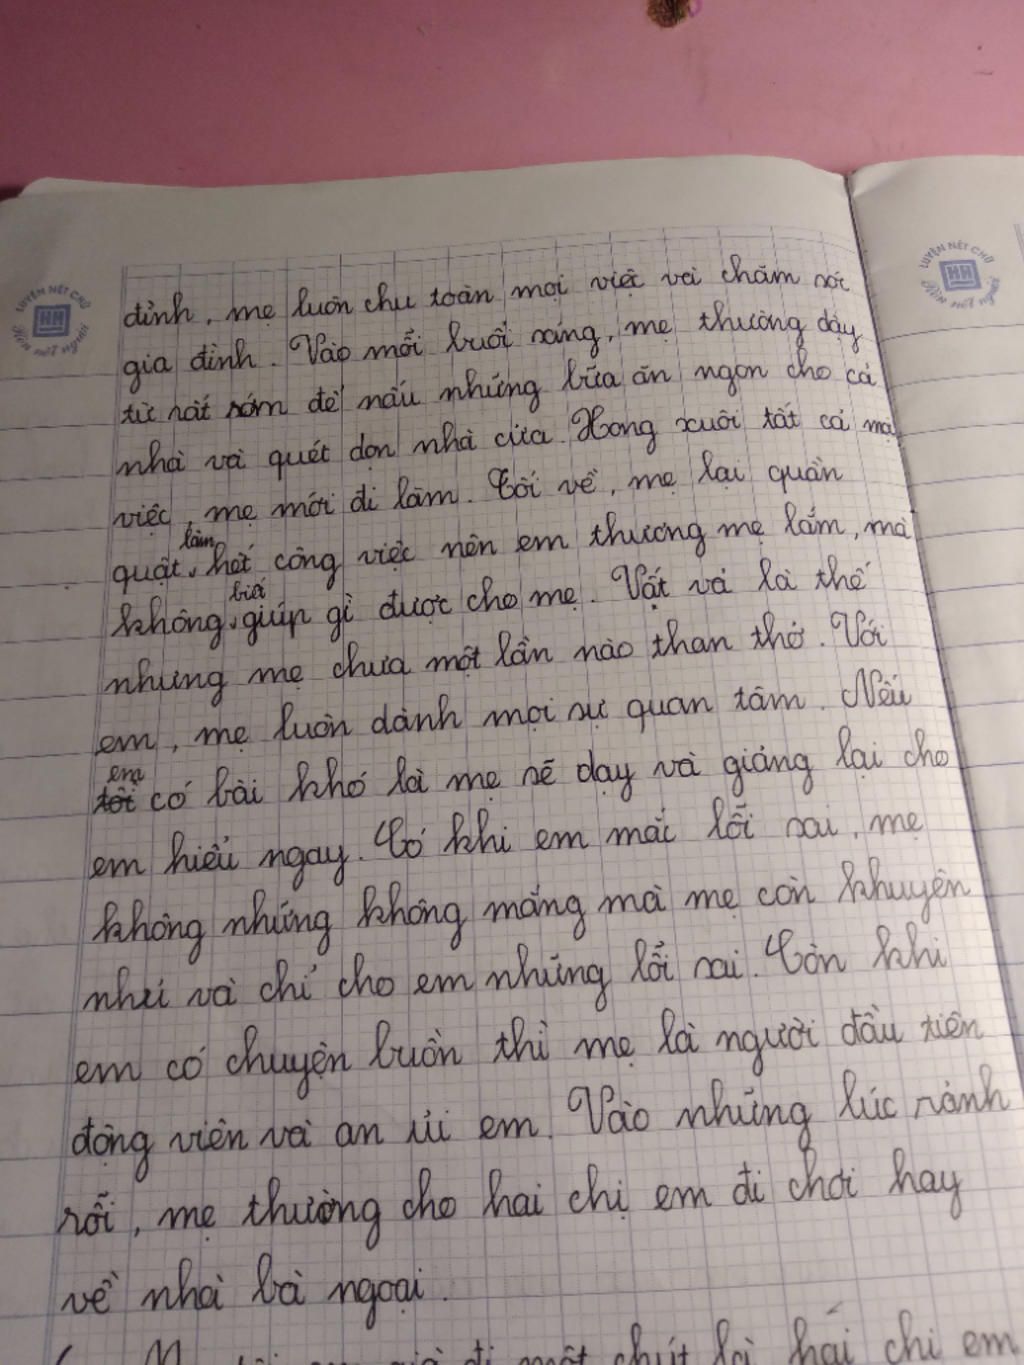 LUYỆN NÉT CHỮ
HH
Rèn nết người
LUYỆN NÉT CHỮ
HH
Rèn nết người
đình, mẹ luôn chu toàn mọi việc và chăm sóc
gia đình. Vào mỗi buổi sáng, mẹ thường dậy
từ rất sớm để nấu những bữa ăn ngon cho cả
nhà và quét dọn nhà cửa. Xong xuôi tất cả mọi
việc, mẹ mới đi làm. Tối về, mẹ lại quần
quật làm hết công việc nên em thương mẹ lắm, mà
không biết giúp gì được cho mẹ. Vất vả là thế
nhưng mẹ chưa một lần nào than thở. Với
em, mẹ luôn dành mọi sự quan tâm. Nếu
em có bài khó là mẹ sẽ dạy và giảng lại cho
em hiểu ngay. Có khi em mắc lỗi sai, mẹ
không những không mắng mà mẹ còn khuyên
nhủ và chỉ cho em những lỗi sai. Còn khi
em có chuyện buồn thì mẹ là người đầu tiên
động viên và an ủi em. Vào những lúc rảnh
rỗi, mẹ thường cho hai chị em đi chơi hay
về nhà bà ngoại.
đi một chút là hai chị em